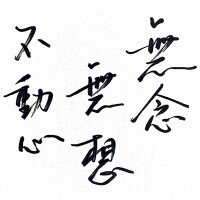 無念
無想
不動心